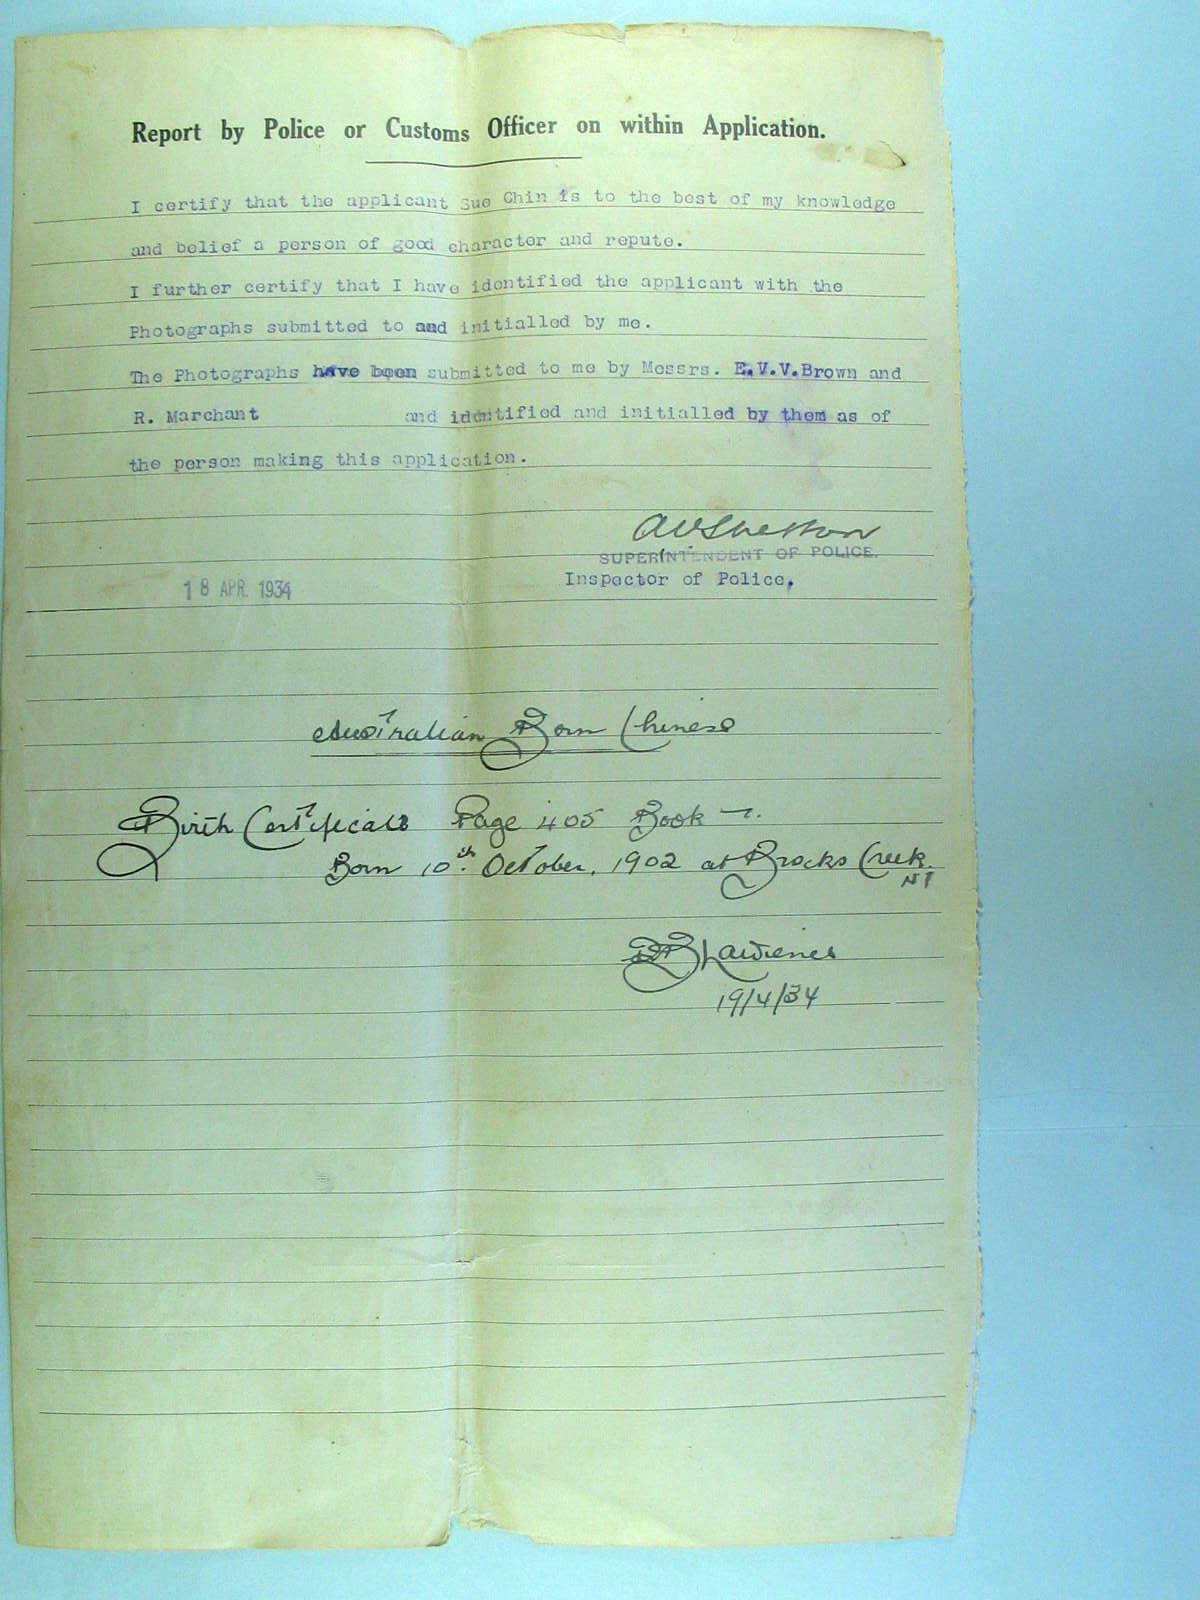 Report by Police or Customs Officer on within Application.
I certify that the applicant Sue Chin is to the best of my knowledge
and belief a person of good character and repute.
I further certify that I have identified the applicant with the
Photographs submitted to and initialled by me.
The Photographs have been submitted to me by Messrs. E.V.V.Brown and
R. Marchant and identified and initialled by them as of
the person making this application.
SUPERINTENDENT OF POLICE.
Inspector of Police.
18 APR. 1934
Australian Born Chinese
Birth Certificate Page 405 Book 7.
Born 10th October, 1902 at Brocks Creek.
NT
19/4/34